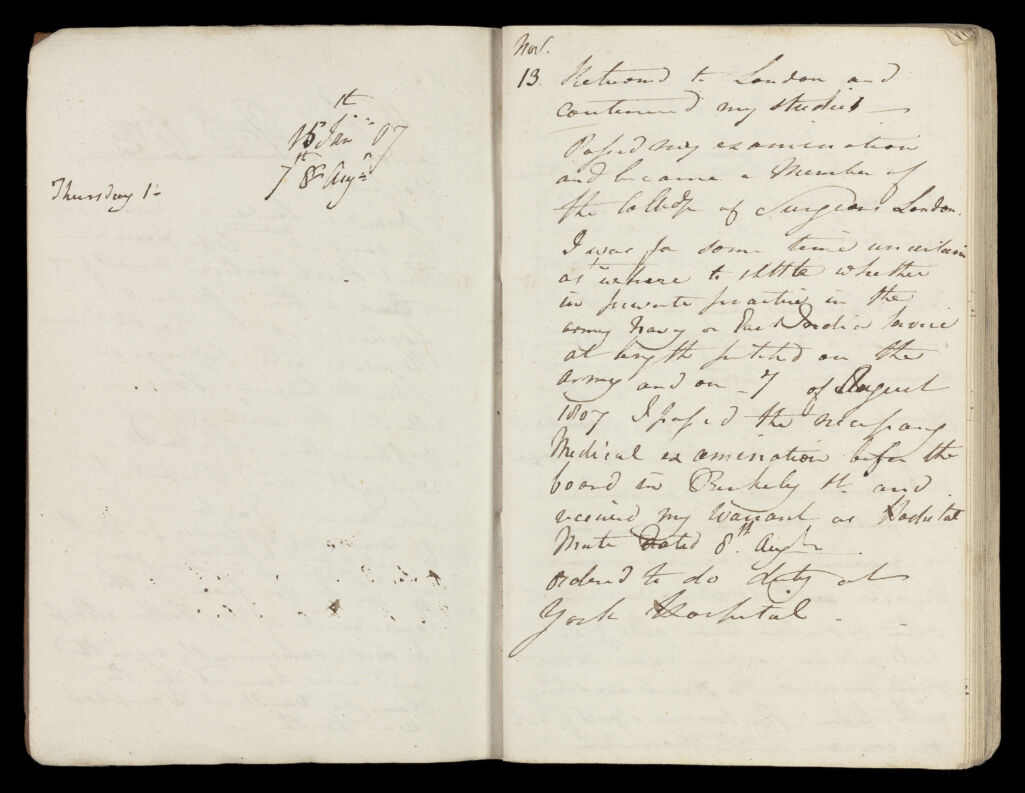 15th Jan 07
7th 8th Augst
Thursday 1st
Nov.
13. Returned to London and
continued my studies —
Passed my examination
and became a Member of
the College of Surgeons London.
I was for some time uncertain
as to where to settle whether
in private practice in the
army Navy or East India Service
at length fixed on the
army and on 7 of August
1807 I passed the necessary
Medical examination before the
board in Berkeley St. and
received my Warrant as Hospital
Mate Dated 8th. Augst
ordered to do duty at
York Hospital.